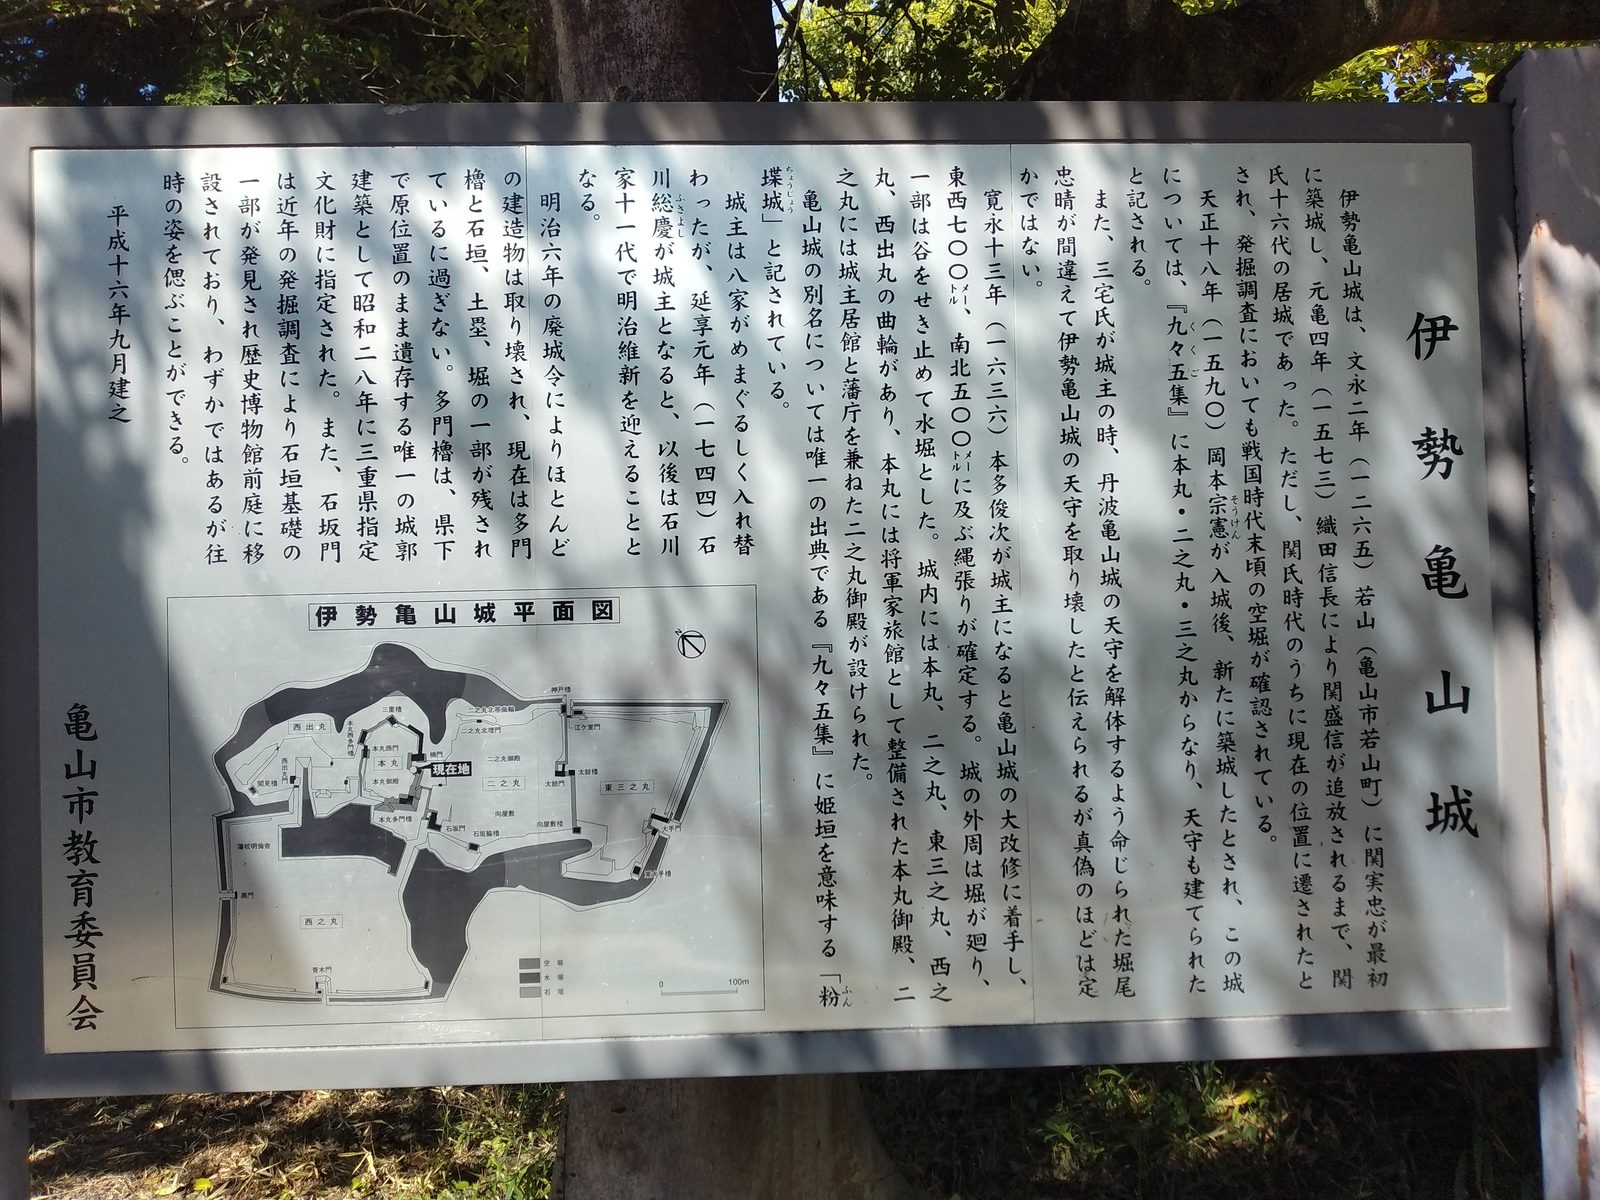 伊勢亀山城
伊勢亀山城は、文永二年（一二六五）若山（亀山市若山町）に関実忠が最初
に築城し、元亀四年（一五七三）織田信長により関盛信が追放されるまで、関
氏十六代の居城であった。ただし、関氏時代のうちに現在の位置に遷されたと
され、発掘調査においても戦国時代末頃の空堀が確認されている。
天正十八年（一五九〇）岡本宗憲が入城後、新たに築城したとされ、この城
そうけん
については、『九々五集』に本丸・二之丸・三之丸からなり、天守も建てられた
くくご
と記される。
また、三宅氏が城主の時、丹波亀山城の天守を解体するよう命じられた堀尾
忠晴が間違えて伊勢亀山城の天守を取り壊したと伝えられるが真偽のほどは定
かではない。
寛永十三年（一六三六）本多俊次が城主になると亀山城の大改修に着手し、
東西七〇〇メートル、南北五〇〇メートルに及ぶ縄張りが確定する。城の外周は堀が廻り、
一部は谷をせき止めて水堀とした。城内には本丸、二之丸、東三之丸、西之
丸、西出丸の曲輪があり、本丸には将軍家旅館として整備された本丸御殿、二
之丸には城主居館と藩庁を兼ねた二之丸御殿が設けられた。
亀山城の別名については唯一の出典である『九々五集』に姫垣を意味する「粉
ふん
堞城」と記されている。
ちょうじょう
城主は八家がめまぐるしく入れ替
わったが、延享元年（一七四四）石
川総慶が城主となると、以後は石川
ふさよし
家十一代で明治維新を迎えることと
なる。
明治六年の廃城令によりほとんど
の建造物は取り壊され、現在は多門
櫓と石垣、土塁、堀の一部が残され
ているに過ぎない。多門櫓は、県下
で原位置のまま遺存する唯一の城郭
建築として昭和二八年に三重県指定
文化財に指定された。また、石坂門
は近年の発掘調査により石垣基礎の
一部が発見され歴史博物館前庭に移
設されており、わずかではあるが往
時の姿を偲ぶことができる。
平成十六年九月建之
亀山市教育委員会
伊勢亀山城平面図
N
神戸櫓
江ケ室門
二之丸北帯曲輪
二之丸北埋門
三重櫓
西出丸
本丸西門
本丸
楠門
現在地
二之丸御殿
二之丸
太鼓櫓
太鼓門
東三之丸
西出丸門
関見櫓
本丸御殿
本丸多門櫓
石坂門
石坂脇櫓
向屋敷
向屋敷櫓
大手門
東大手櫓
藩校明倫舎
黒門
西之丸
青木門
空堀
水堀
石垣
0
100m